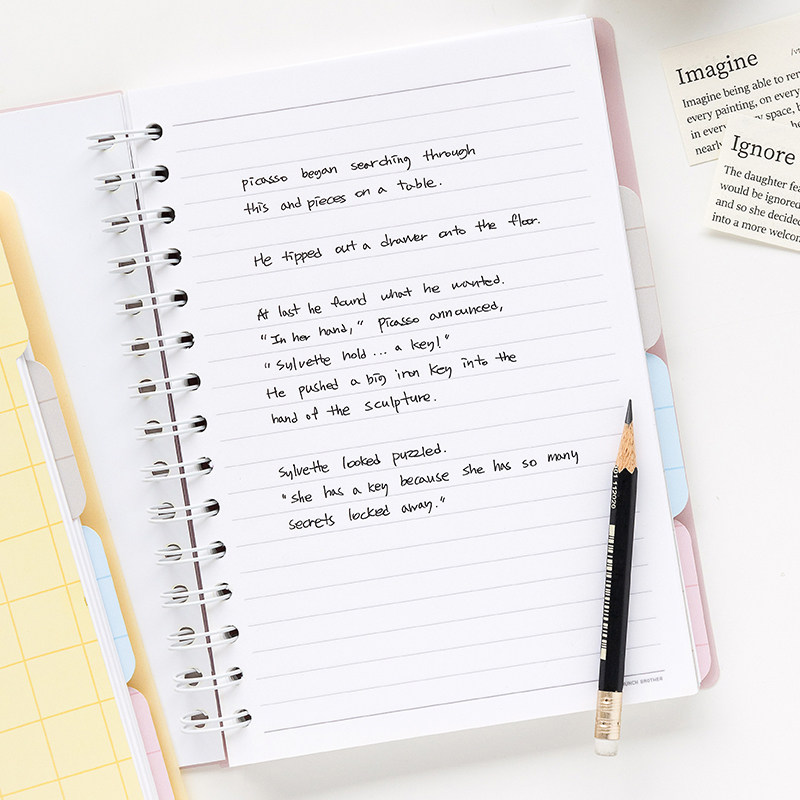 picasso began searching through
this and pieces on a table.
He tipped out a drawer onto the floor.
At last he found what he wanted.
"In her hand," picasso announced,
"Sylvette hold ... a key!"
He pushed a big iron key into the
hand of the sculpture.
Sylvette looked puzzled.
"She has a key because she has so many
secrets locked away."
Imagine
Imagine being able to
every painting, on every
in every space,
nearly
Ignore
The daughter
would be ignored
and so she decided
into a more
BROTHER